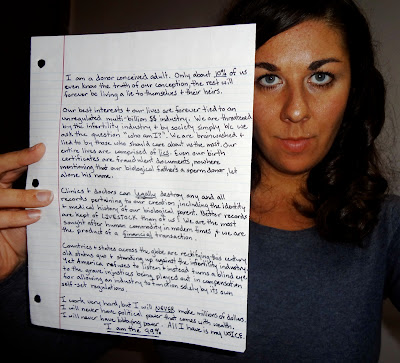 I am a donor conceived adult. Only about 10% of us
even know the truth of our conception, the rest will
forever be living a lie to themselves + their heirs.
Our best interests + our lives are forever tied to an
unregulated multi-billion $$ industry. We are threatened
by the infertility industry + by society simply b/c we
ask the question "who am I?". We are brainwashed +
lied to by those who should care about us the most. Our
entire lives are comprised of lies. Even our birth
certificates are fraudulent documents, nowhere
mentioning that our biological father's a sperm donor, let
alone his name.
Clinics + doctors can legally destroy any and all
records pertaining to our creation, including the identity
+ medical history of our biological parent. Better records
are kept of LIVESTOCK than of us! We are the most
sought after human commodity in modern times + we are
the product of a financial transaction.
Countries + states across the globe are rectifying this century
old status quo + standing up against the infertility industry.
Yet America refuses to listen + instead turns a blind eye
to the grave injustices being played out in compensation
for allowing an industry to function solely by its own
self-set regulations.
I work very hard, but I will NEVER make millions of dollars.
I will never have political power that comes with wealth.
I will never have lobbying power. All I have is my VOICE.
I am the 99%